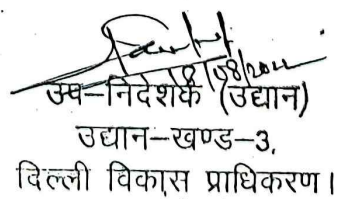 उप-निदेशक (उद्यान)
उद्यान-खण्ड-3,
दिल्ली विकास प्राधिकरण।